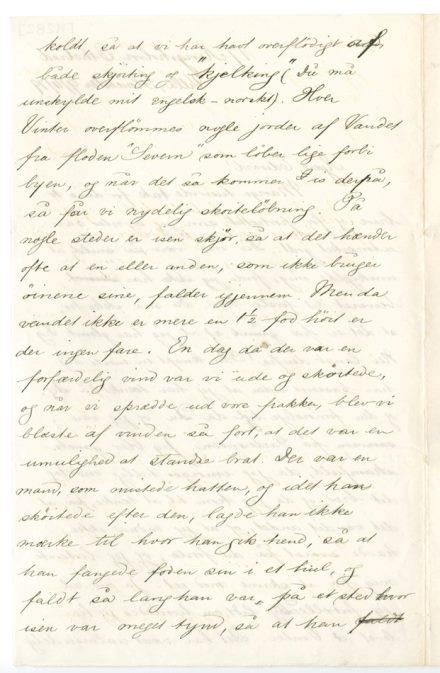 koldt så at vi har havt overflödigt af
både skjöiting og "kjelking" (Du må
undskylde mit engelsk-norskt). Hver
Vinter overflömmes nogle jorder af Vandet
fra floden "Severn" som löber lige forbi
byen, og når det så kommer Is derpå,
så får vi nydelig skøitelöbning. På
nogle steder er isen skjör, så at det hænder
ofte at en eller anden, som ikke bruger
öinene sine, falder igjennem. Men da
vandet ikke er mere en 1½ fod höit er
der ingen fare. En dag da der var en
forfærdelig vind var vi ude og sköitede,
og når vi sprædde ud vore frakker, blev vi
blæste af vinden så fort, at det var en
umulighed at standse brat. Der var en
mand, som mistede hatten, og idet han
sköitede efter den, lagde han ikke
mærke til hvor han gik hend, så at
han fangede foden sin i et hul, og
faldt så lang han var, på et sted hvor
isen var meget tynd, så at han faldt